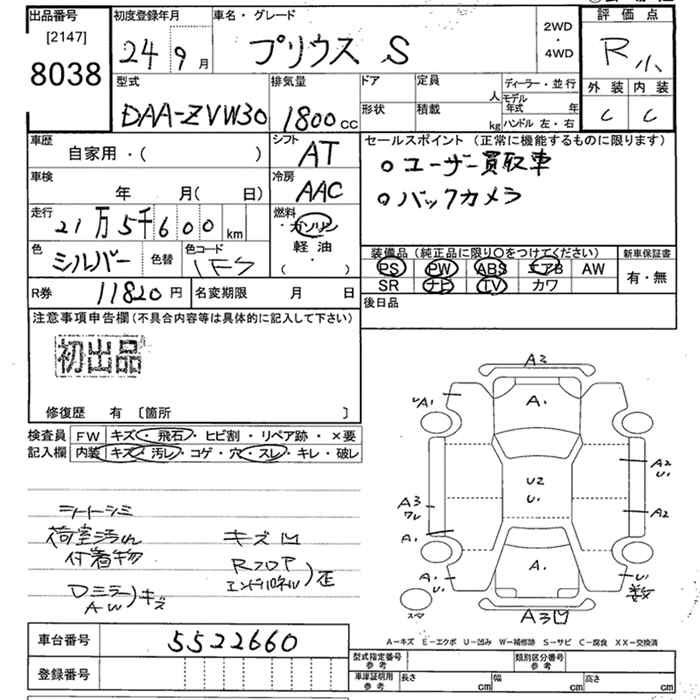 出品番号
[2147]
8038
初度登録年月
24 9 月
車名・グレード
プリウス S
2WD
・
4WD
評価点
R 小
外装 内装
C C
型式
DAA-ZVW30
排気量
1800 CC
ドア
定員
人
形状
積載
kg
ディーラー・並行
モデル
年式 年
ハンドル 左・右
車歴
自家用・( )
シフト
AT
セールスポイント (正常に機能するものに限ります)
○ユーザー買取車
○バックカメラ
車検
年 月( 日)
冷房
AAC
走行
21万5千600 km
燃料
ガソリン
軽油
( )
色
シルバー
色替
色コード
1F7
装備品 (純正品に限り○をつけてください)
PS PW ABS エアB AW
SR ナビ TV カワ
新車保証書
有・無
R券
11820 円
名変期限 月 日
後日品
注意事項申告欄 (不具合内容等は具体的に記入して下さい)
初出品
修復歴 有 〔箇所 〕
検査員
記入欄
FW キズ・飛石・ヒビ割・リペア跡・×要
内装 キズ・汚レ・コゲ・穴・スレ・キレ・破レ
シートシミ
荷室汚れ
付着物
キズ凹
Dミラー
AW )キズ
Rフロア
エンドパネル )歪
A3
A1
A1
U2
U1
A2
U1
A3
ワレ
A2
A1
A1
A1
U1
U1
数
スマ
A3凹
A-キズ E-エクボ U-凹み W-補修跡 S-サビ C-腐食 XX-交換済
車台番号
5522660
登録番号
型式指定番号
参考
類別区分番号
参考
車庫証明用
参考
長さ cm
幅 cm
高さ cm